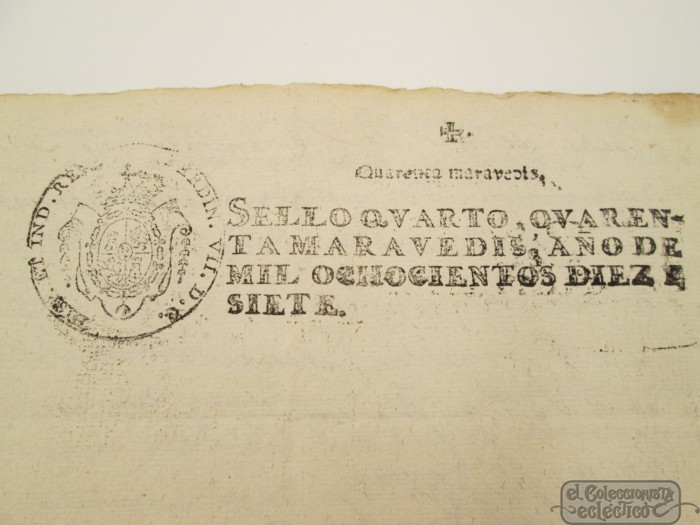 ✠.
Quarenta maravedis.
SELLO QVARTO, QVAREN-
TA MARAVEDIS, AÑO DE
MIL OCHOCIENTOS DIEZ E
SIETE.
DIN. VII. D. G.
ET IND. RE
el Coleccionista
ecléctico